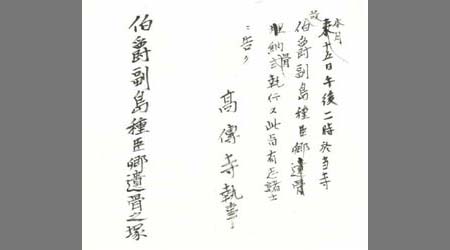 本月
来十五日午後二時於当寺
故
伯爵副島種臣卿遺骨
納骨式執行ス此旨有志諸士
ニ告ク
高傳寺執事
伯爵副島種臣卿遺骨之塚